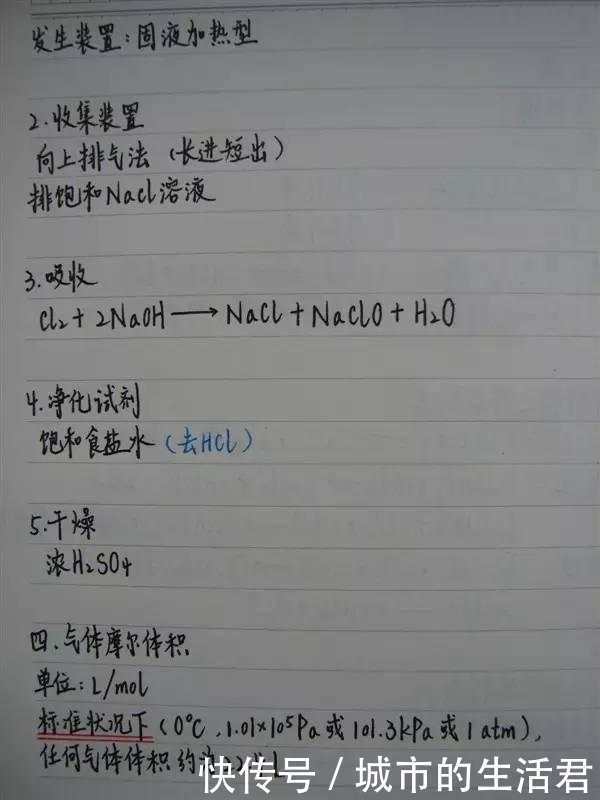 发生装置：固液加热型
2.收集装置
向上排气法（长进短出）
排饱和NaCl溶液
3.吸收
Cl₂+2NaOH⟶NaCl+NaClO+H₂O
4.净化试剂
饱和食盐水（去HCl）
5.干燥
浓H₂SO₄
四.气体摩尔体积
单位：L/mol
标准状况下（0℃，1.01×10⁵Pa或101.3kPa或1atm），
任何气体体积约为
快传号/城市的生活君